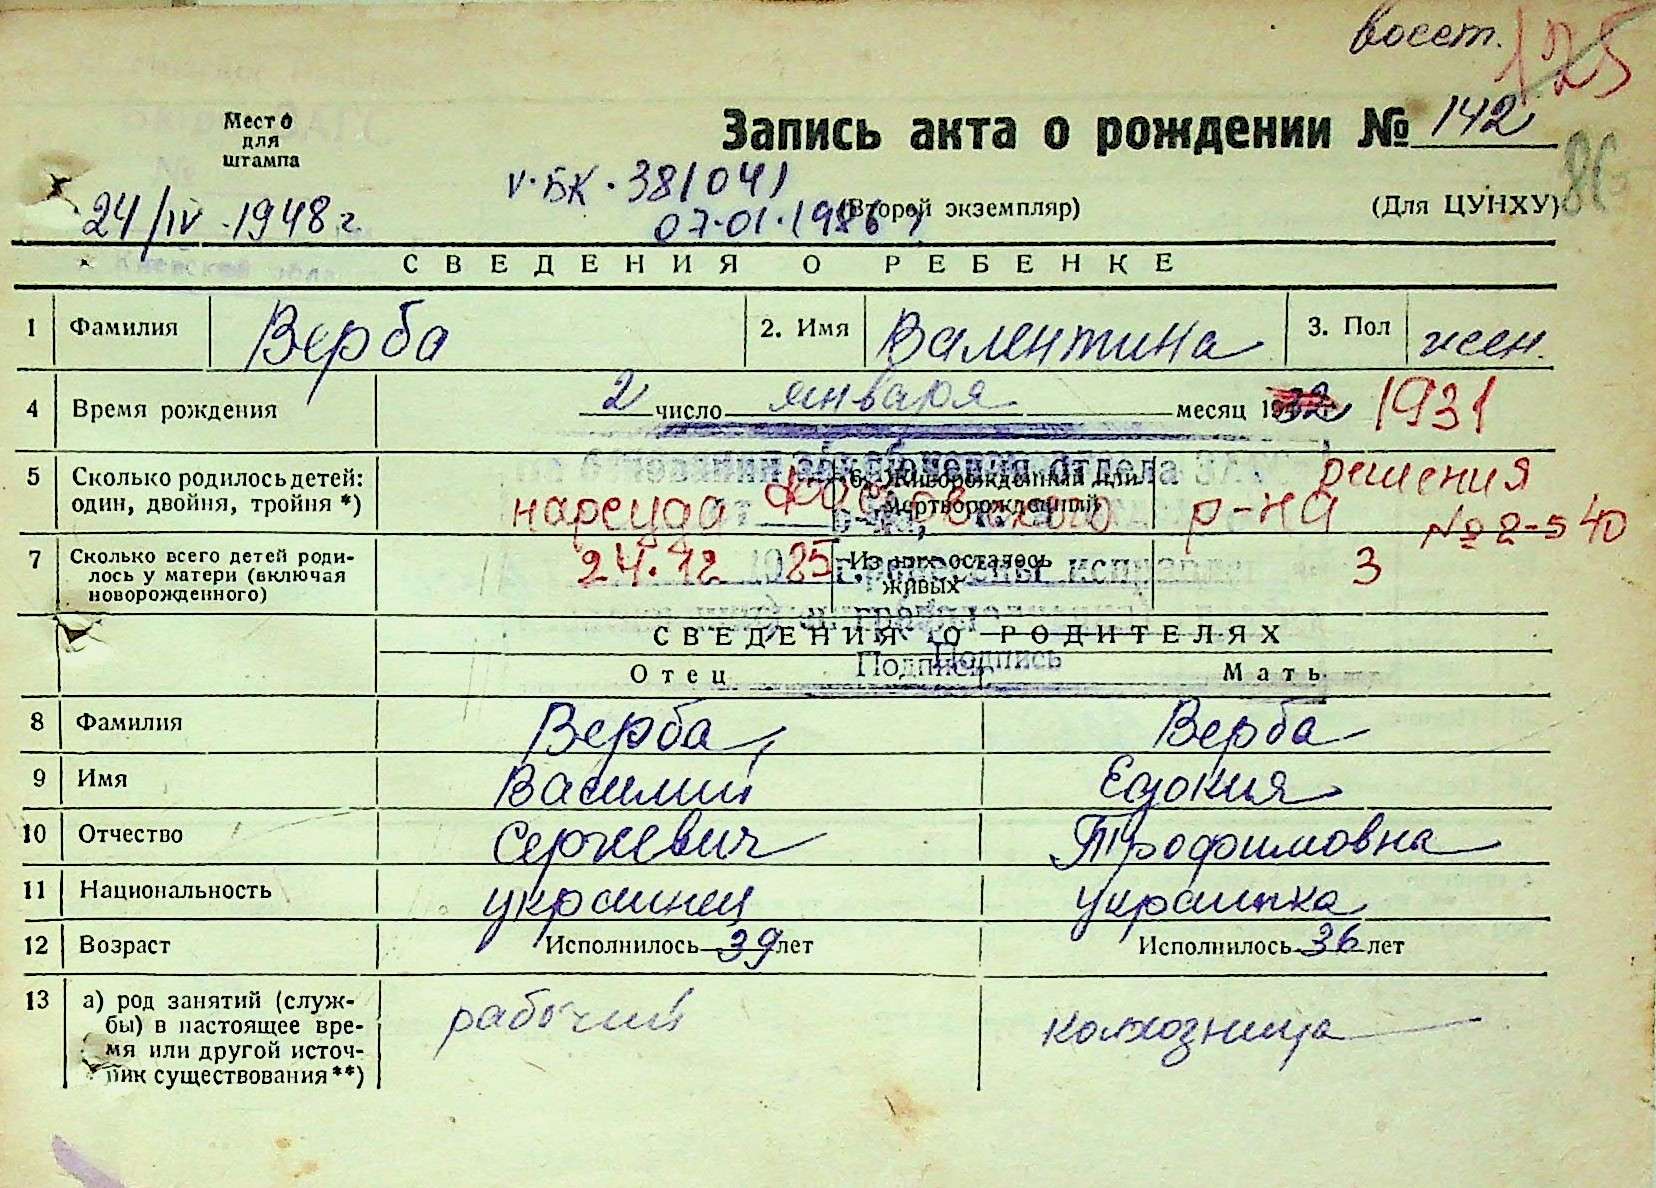 восст. 125
Место
для
штампа
Запись акта о рождении № 142
V. БК. 38/041
24/IV-1948 г.
07.01.1986 г.
(Второй экземпляр)
(Для ЦУНХУ)
СВЕДЕНИЯ О РЕБЕНКЕ
1 Фамилия Верба 2. Имя Валентина 3. Пол жен.
4 Время рождения 2 число января месяц 1932 1931
5 Сколько родилось детей: один, двойня, тройня *) 6. Живорожденный или мертворожденный
решения
нарсуда Фастовского р-на № 2-540
7 Сколько всего детей родилось у матери (включая новорожденного) Из них осталось живых 3
24.12 1985 г.
СВЕДЕНИЯ О РОДИТЕЛЯХ
Подпись
Отец Мать
8 Фамилия Верба Верба
9 Имя Василий Евдокия
10 Отчество Сергеевич Трофимовна
11 Национальность украинец украинка
12 Возраст Исполнилось 39 лет Исполнилось 36 лет
13 а) род занятий (службы) в настоящее время или другой источник существования **) рабочий колхозница